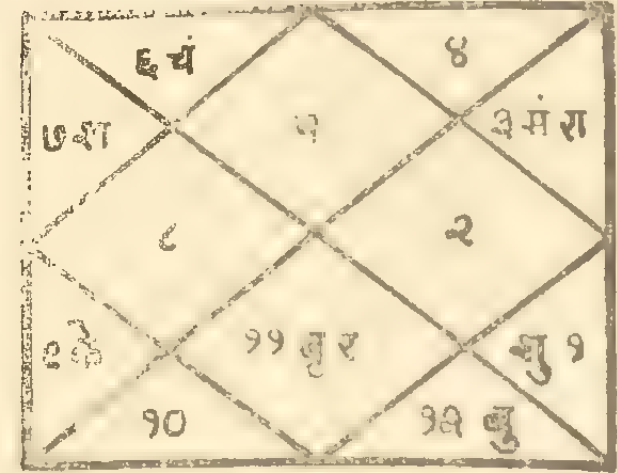 ६ चं
४
७ श
५
३ मं रा
८
२
९ के
११ बु र
शु १
१०
१२ बृ